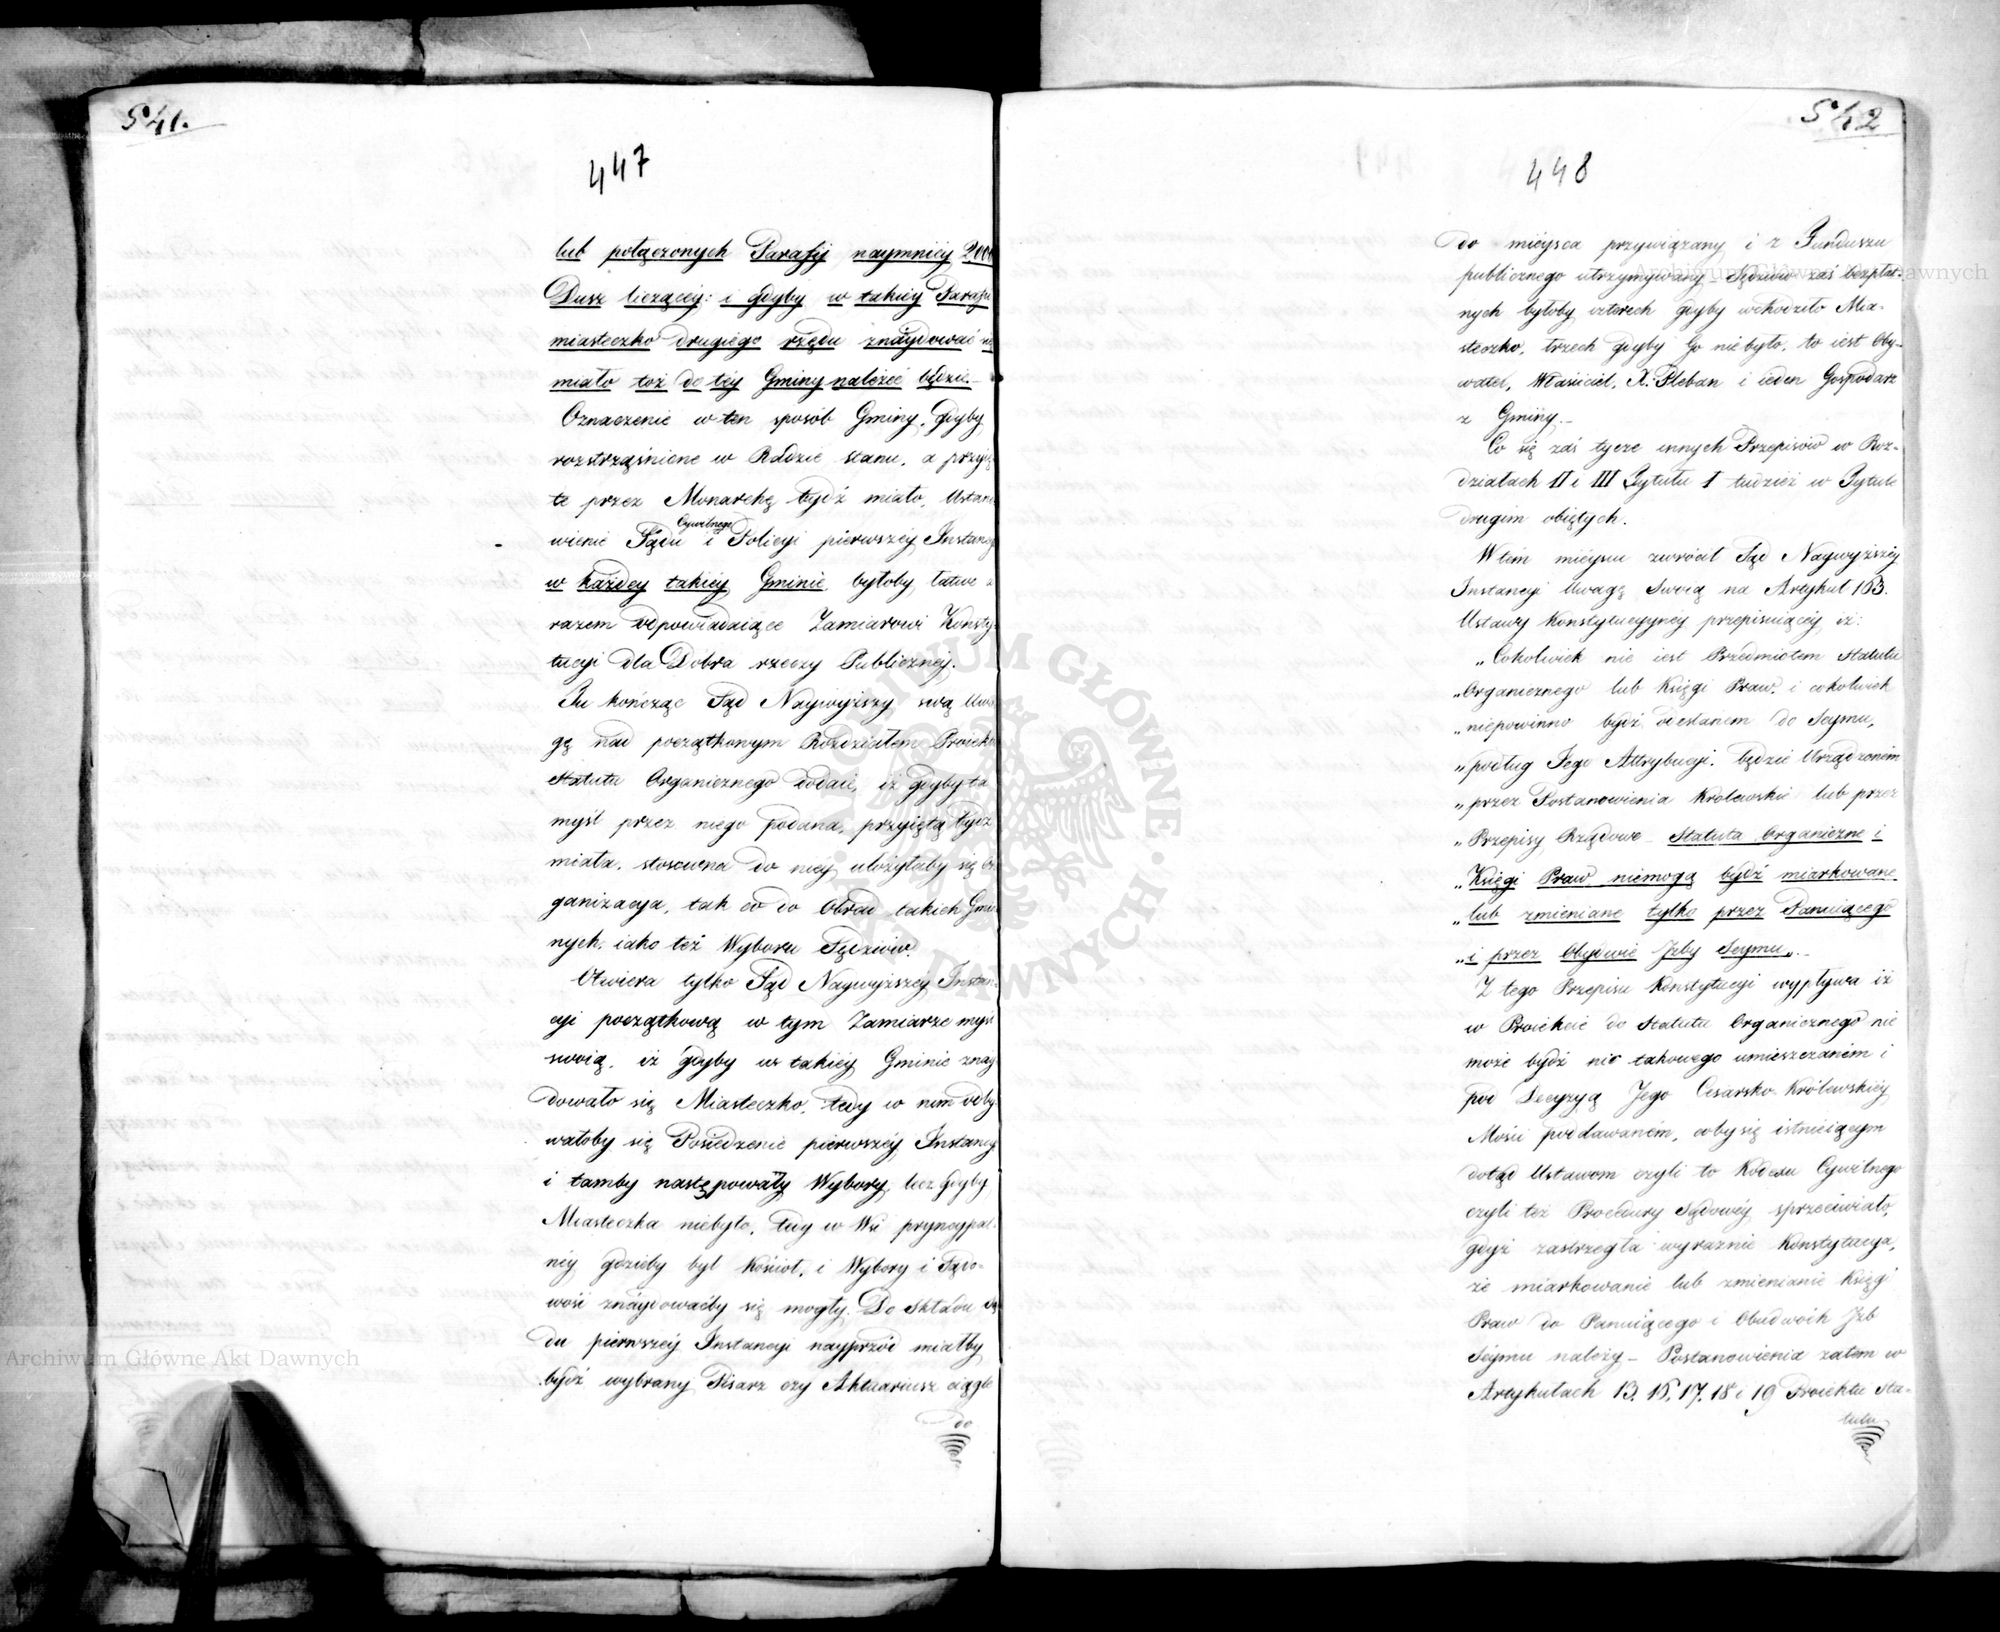 541.
447
lub połączonych Parafij naymnięy 2,000
Dusz liczącéy: i gdyby w takiéy Parafii
miasteczko drugiego rzędu znaydować się
miało toż do téy Gminy należeć będzie.
Oznaczenie w ten sposób Gminy, gdyby
rozstrząśnione w Radzie stanu, a przyię-
te przez Monarchę bydź miało, Ustano
wienie Sądu Cywilnego i Policyi pierwszéy Instancyi
w każdey takiéy Gminie, byłoby łatwe a
razem odpowiadaiące Zamiarowi Konsty-
tucyi dla Dobra rzeczy Publicznéy.
Tu kończąc Sąd Naywyższy swą Uwa
gę nad początkowym Rozdziałem Proiektu
Statutu Organicznego dodaie, iż gdyby ta
myśl przez niego podana, przyiętą bydź
miała, stosowna do niey ułożyłaby się Or
ganizacya, tak co do Obrad takich Gmin
nych, iako też Wyboru Sędziów.
Otwiera tylko Sąd Naywyższéy Instan-
cyi początkową w tym Zamiarze myśl
swoią, iż gdyby w takiéy Gminie znay
dowało się Miasteczko, tedy w nim odby
wałoby się Posiedzenie pierwszéy Instancyi
i tamby następowały Wybory, lecz gdyby
Miasteczka niebyło, tedy w Wsi pryncypal-
néy gdzieby był Kościoł, i Wybory i Sądo-
wość znaydowaćby się mogły. Do składu Są
du pierwszéy Instancyi nayprzód miałby
bydź wybrany Pisarz czy Aktuariusz ciągle
do
542
448
do mieysca przywiązany i z Funduszu
publicznego utrzymywany – Sędziów zaś bezpłat-
nych byłoby czterech gdyby wchodziło Mia-
steczko, trzech gdyby Go niebyło, to iest Oby-
watel, Właściciel, X. Pleban i ieden Gospodarz
z Gminy.–
Co się zaś tycze innych Przepisów w Roz-
działach II i III Tytułu I tudzież w Tytule
drugim obiętych.
W tém mieyscu zwrócił Sąd Naywyższéy
Instancyi Uwagę Swoią na Artykuł 163.
Ustawy Konstytucyynéy przepisuiącéy iż:
„Cokolwiek nie iest Przedmiotem Statutu
„Organicznego lub Księgi Praw, i cokolwiek
„niepowinno bydź odesłanem do Seymu,
„podług Jego Attrybucyi, będzie Urządzonem
„przez Postanowienia Królewskie lub przez
„Przepisy Rządowe – Statuta Organiczne i
„Księgi Praw niemogą bydź miarkowane
„lub zmieniane tylko przez Panuiącego
„i przez Obydwie Izby Seymu„.–
Z tego Przepisu Konstytucyi wypływa iż
w Proiekcie do Statutu Organicznego nie
może bydź nic takowego umieszczaném i
pod Decyzyą Jego Cesarsko-Królewskiéy
Mości poddawaném, coby się istnieiącym
dotąd Ustawom czyli to Kodexu Cywilnego
czyli też Procedury Sądowéy sprzeciwiało,
gdyż zastrzegła wyraznie Konstytucya,
że miarkowanie lub zmienianie Księgi
Praw do Panuiącego i Obudwóch Izb
Seymu należy – Postanowienia zatem w
Artykułach 13. 16. 17. 18 i 19 Proiektu Sta-
tutu